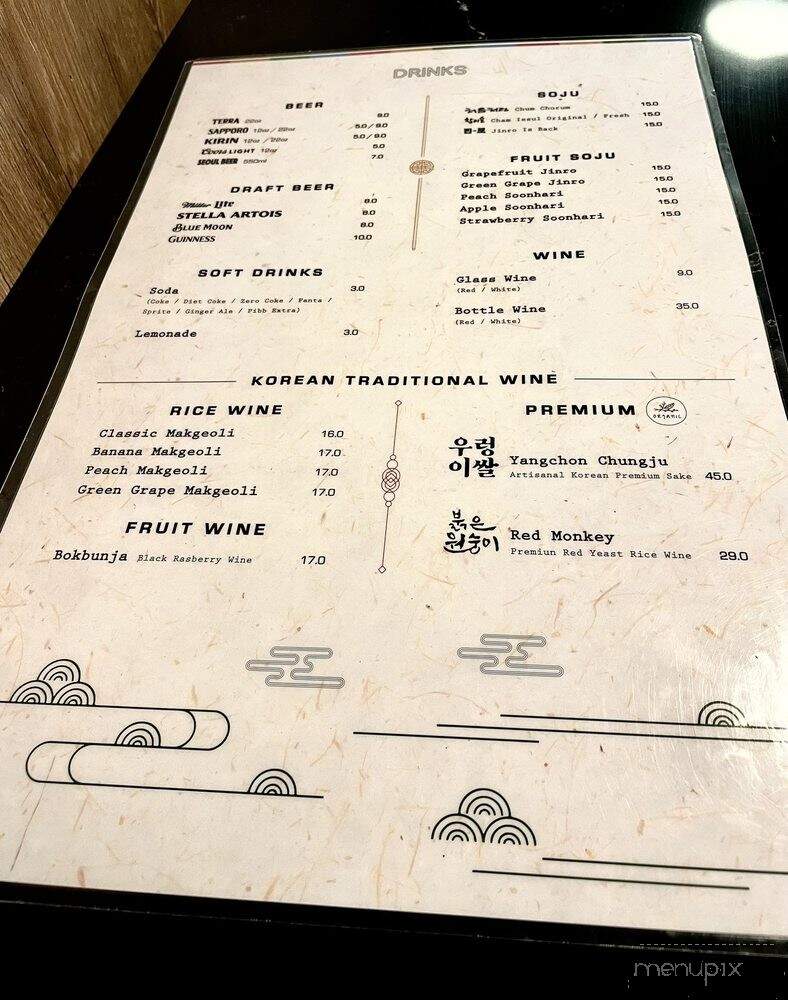 DRINKS
BEER
TERRA 22oz 9.0
SAPPORO 12oz / 22oz 5.0 / 9.0
KIRIN 12oz / 22oz 5.0 / 9.0
Coors LIGHT 12oz 5.0
SEOUL BEER 550ml 7.0
DRAFT BEER
Miller Lite 8.0
STELLA ARTOIS 8.0
BLUE MOON 8.0
GUINNESS 10.0
SOFT DRINKS
Soda 3.0
(Coke / Diet Coke / Zero Coke / Fanta /
Sprite / Ginger Ale / Pibb Extra)
Lemonade 3.0
SOJU
Chum Churum 15.0
Cham Issul Original / Fresh 15.0
Jinro Is Back 15.0
FRUIT SOJU
Grapefruit Jinro 15.0
Green Grape Jinro 15.0
Peach Soonhari 15.0
Apple Soonhari 15.0
Strawberry Soonhari 15.0
WINE
Glass Wine 9.0
(Red / White)
Bottle Wine 35.0
(Red / White)
KOREAN TRADITIONAL WINE
RICE WINE
Classic Makgeoli 16.0
Banana Makgeoli 17.0
Peach Makgeoli 17.0
Green Grape Makgeoli 17.0
FRUIT WINE
Bokbunja Black Rasberry Wine 17.0
PREMIUM ORGANIC
우렁
이쌀
Yangchon Chungju
Artisanal Korean Premium Sake 45.0
붉은
원숭이
Red Monkey
Premiun Red Yeast Rice Wine 29.0
menupix